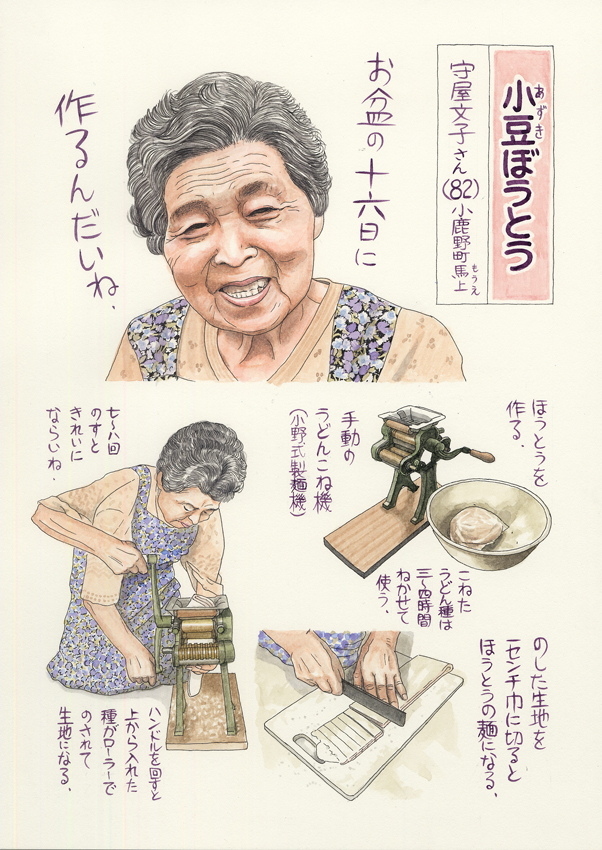 小豆ぼうとう
あずき
守屋文子さん(82)小鹿野町馬上
もうえ
お盆の十六日に
作るんだいね.
ほうとうを
作る.
手動の
うどんこね機
(小野式製麺機)
こねた
うどん種は
三〜四時間
ねかせて
使う.
七〜八回
のすと
きれいに
ならいね.
ハンドルを回すと
上から入れた
種がローラーで
のされて
生地になる.
のした生地を
一センチ巾に切ると
ほうとうの麺になる.